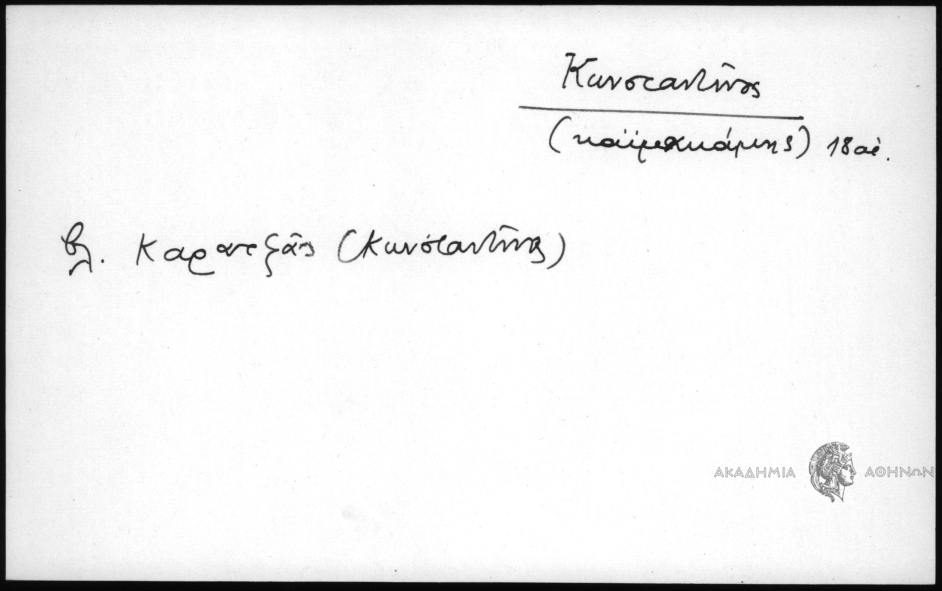 Κωνσταντῖνος
(καϊμακάμης) 18 αἰ.
βλ. Καρατζᾶς (Κωνσταντῖνος)
ΑΚΑΔΗΜΙΑ ΑΘΗΝΩΝ